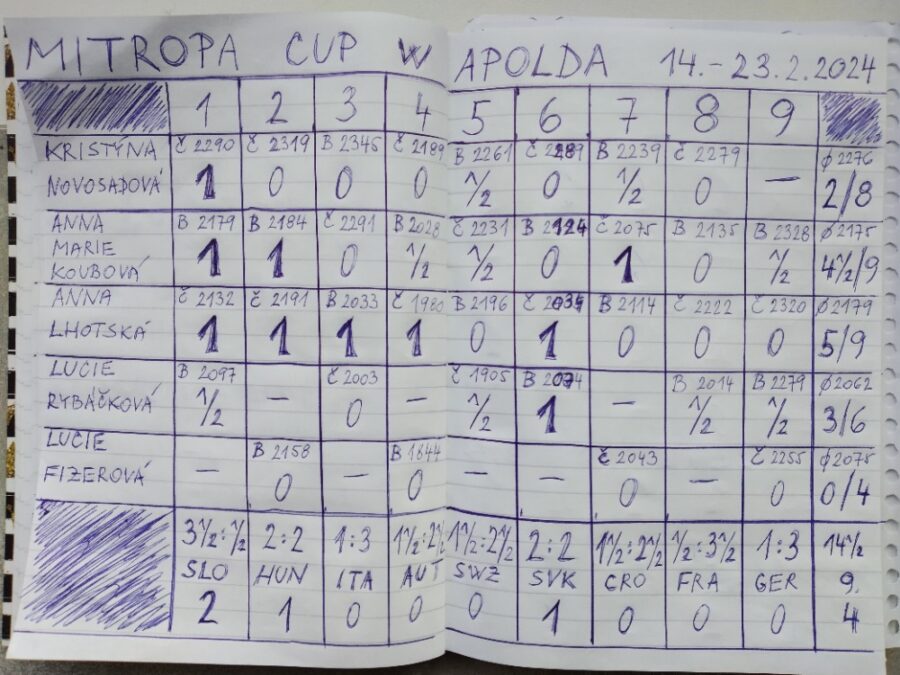 MITROPA CUP W APOLDA 14.-23.2.2024
1 2 3 4 5 6 7 8 9
KRISTÝNA Č 2290 Č 2319 B 2345 Č 2189 B 2261 Č 2289 B 2239 Č 2279 Ø 2276
NOVOSADOVÁ 1 0 0 0 1/2 0 1/2 0 – 2/8
ANNA B 2179 B 2184 Č 2291 B 2028 Č 2231 B 2124 Č 2075 B 2135 B 2328 Ø 2175
MARIE 1 1 0 1/2 1/2 0 1 0 1/2 4 1/2/9
KOUBOVÁ
ANNA Č 2132 Č 2191 B 2033 Č 1980 B 2196 Č 2034 B 2114 Č 2222 Č 2320 Ø 2179
LHOTSKÁ 1 1 1 1 0 1 0 0 0 5/9
LUCIE B 2097 Č 2003 Č 1905 B 2074 B 2014 B 2279 Ø 2062
RYBÁČKOVÁ 1/2 – 0 – 1/2 1 – 1/2 1/2 3/6
LUCIE B 2158 B 1844 Č 2043 Č 2255 Ø 2075
FIZEROVÁ – 0 – 0 – – 0 – 0 0/4
3 1/2:1/2 2:2 1:3 1 1/2:2 1/2 1 1/2:2 1/2 2:2 1 1/2:2 1/2 1/2:3 1/2 1:3 14 1/2
SLO HUN ITA AUT SWZ SVK CRO FRA GER 9.
2 1 0 0 0 1 0 0 0 4